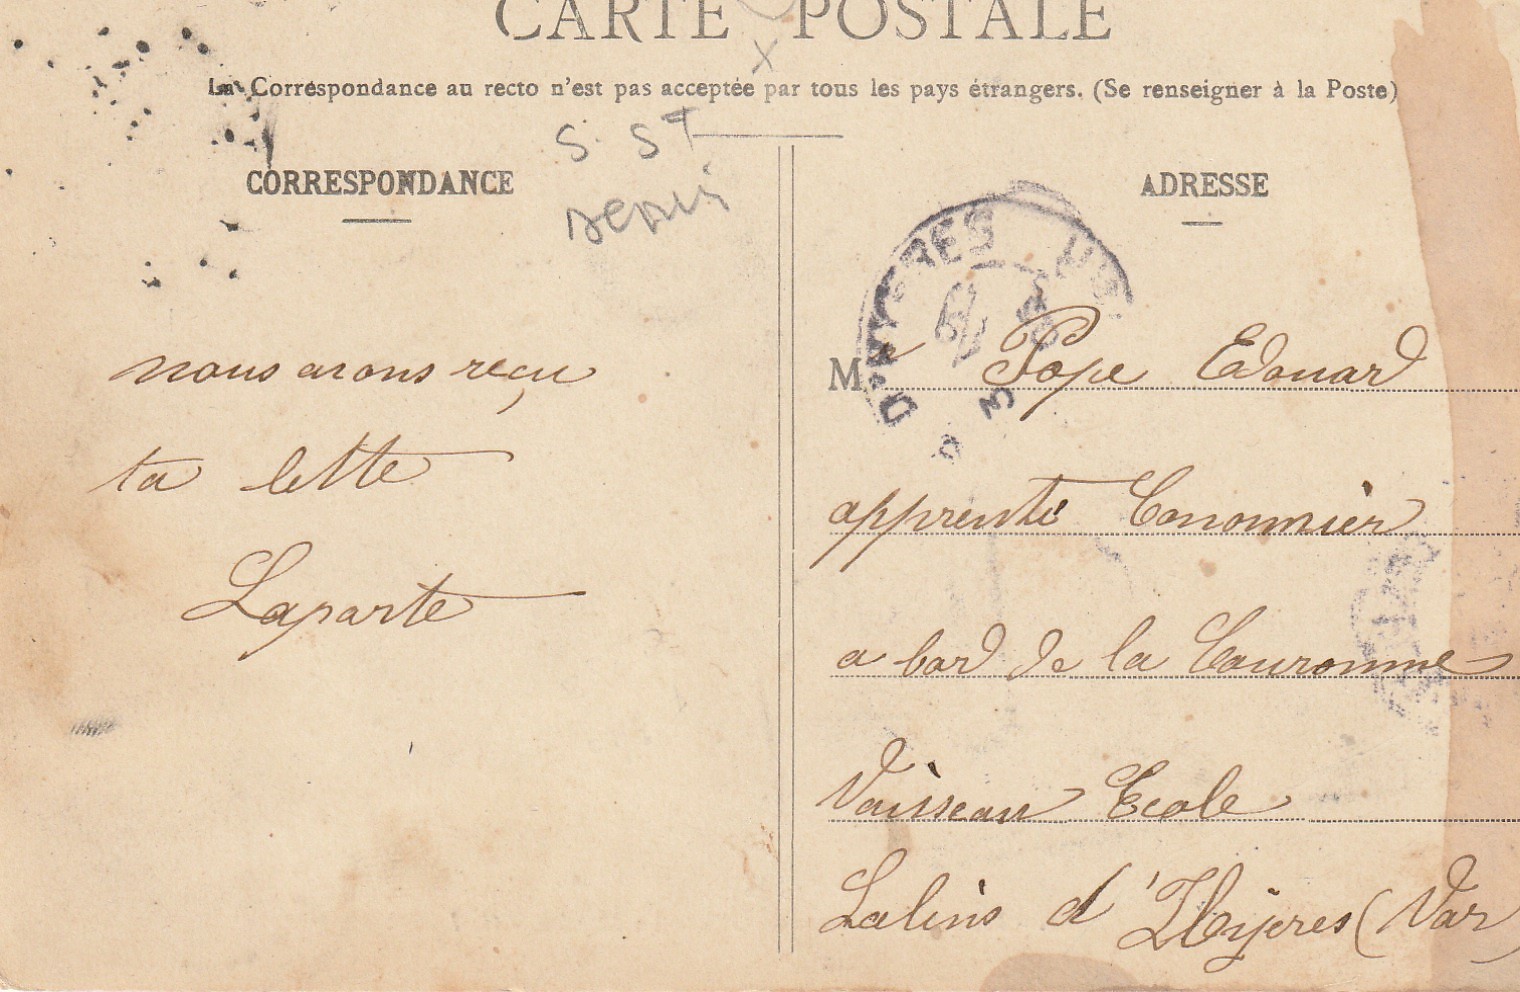 CARTE POSTALE
La Correspondance au recto n'est pas acceptée par tous les pays étrangers. (Se renseigner à la Poste)
S. ST
DENIS
CORRESPONDANCE
nous avons reçu
ta lette
Laparte
ADRESSE
D'HYERES
Mr Pope Edouard
apprenti Canonnier
a bord de la Couronne
Vaisseau Ecole
Salins d'Hyeres (Var